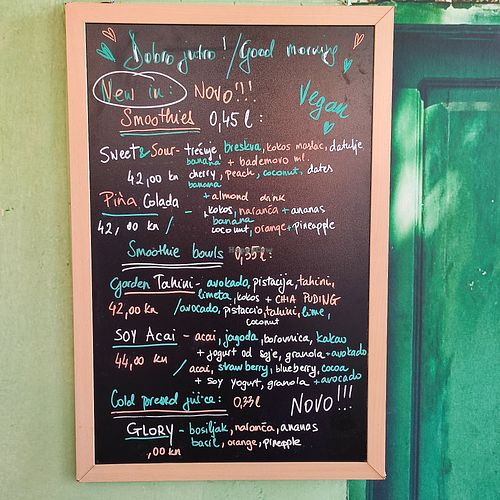 Dobro jutro! / Good morning
New in: Novo!!!
Vegan
Smoothies 0,45 l:
Sweet & Sour - trešnje, breskva, kokos maslac, datulje
banana + bademovo ml.
42,00 kn cherry, peach, coconut, dates
banana
+ almond drink
Piña Colada - kokos, naranča + ananas
banana
42,00 kn / coconut, orange + pineapple
Smoothie bowls 0,35 l:
Garden Tahini - avokado, pistacija, tahini,
limeta, kokos + CHIA PUDING
42,00 kn / avocado, pistaccio, tahini, lime,
coconut
SOY Acai - acai, jagoda, borovnica, kakao
+ jogurt od soje, granola + avokado
44,00 kn / acai, strawberry, blueberry, cocoa
+ soy yogurt, granola + avocado
Cold pressed juice: 0,33 l
NOVO!!!
GLORY - bosiljak, naranča, ananas
basil, orange, pineapple
,00 kn